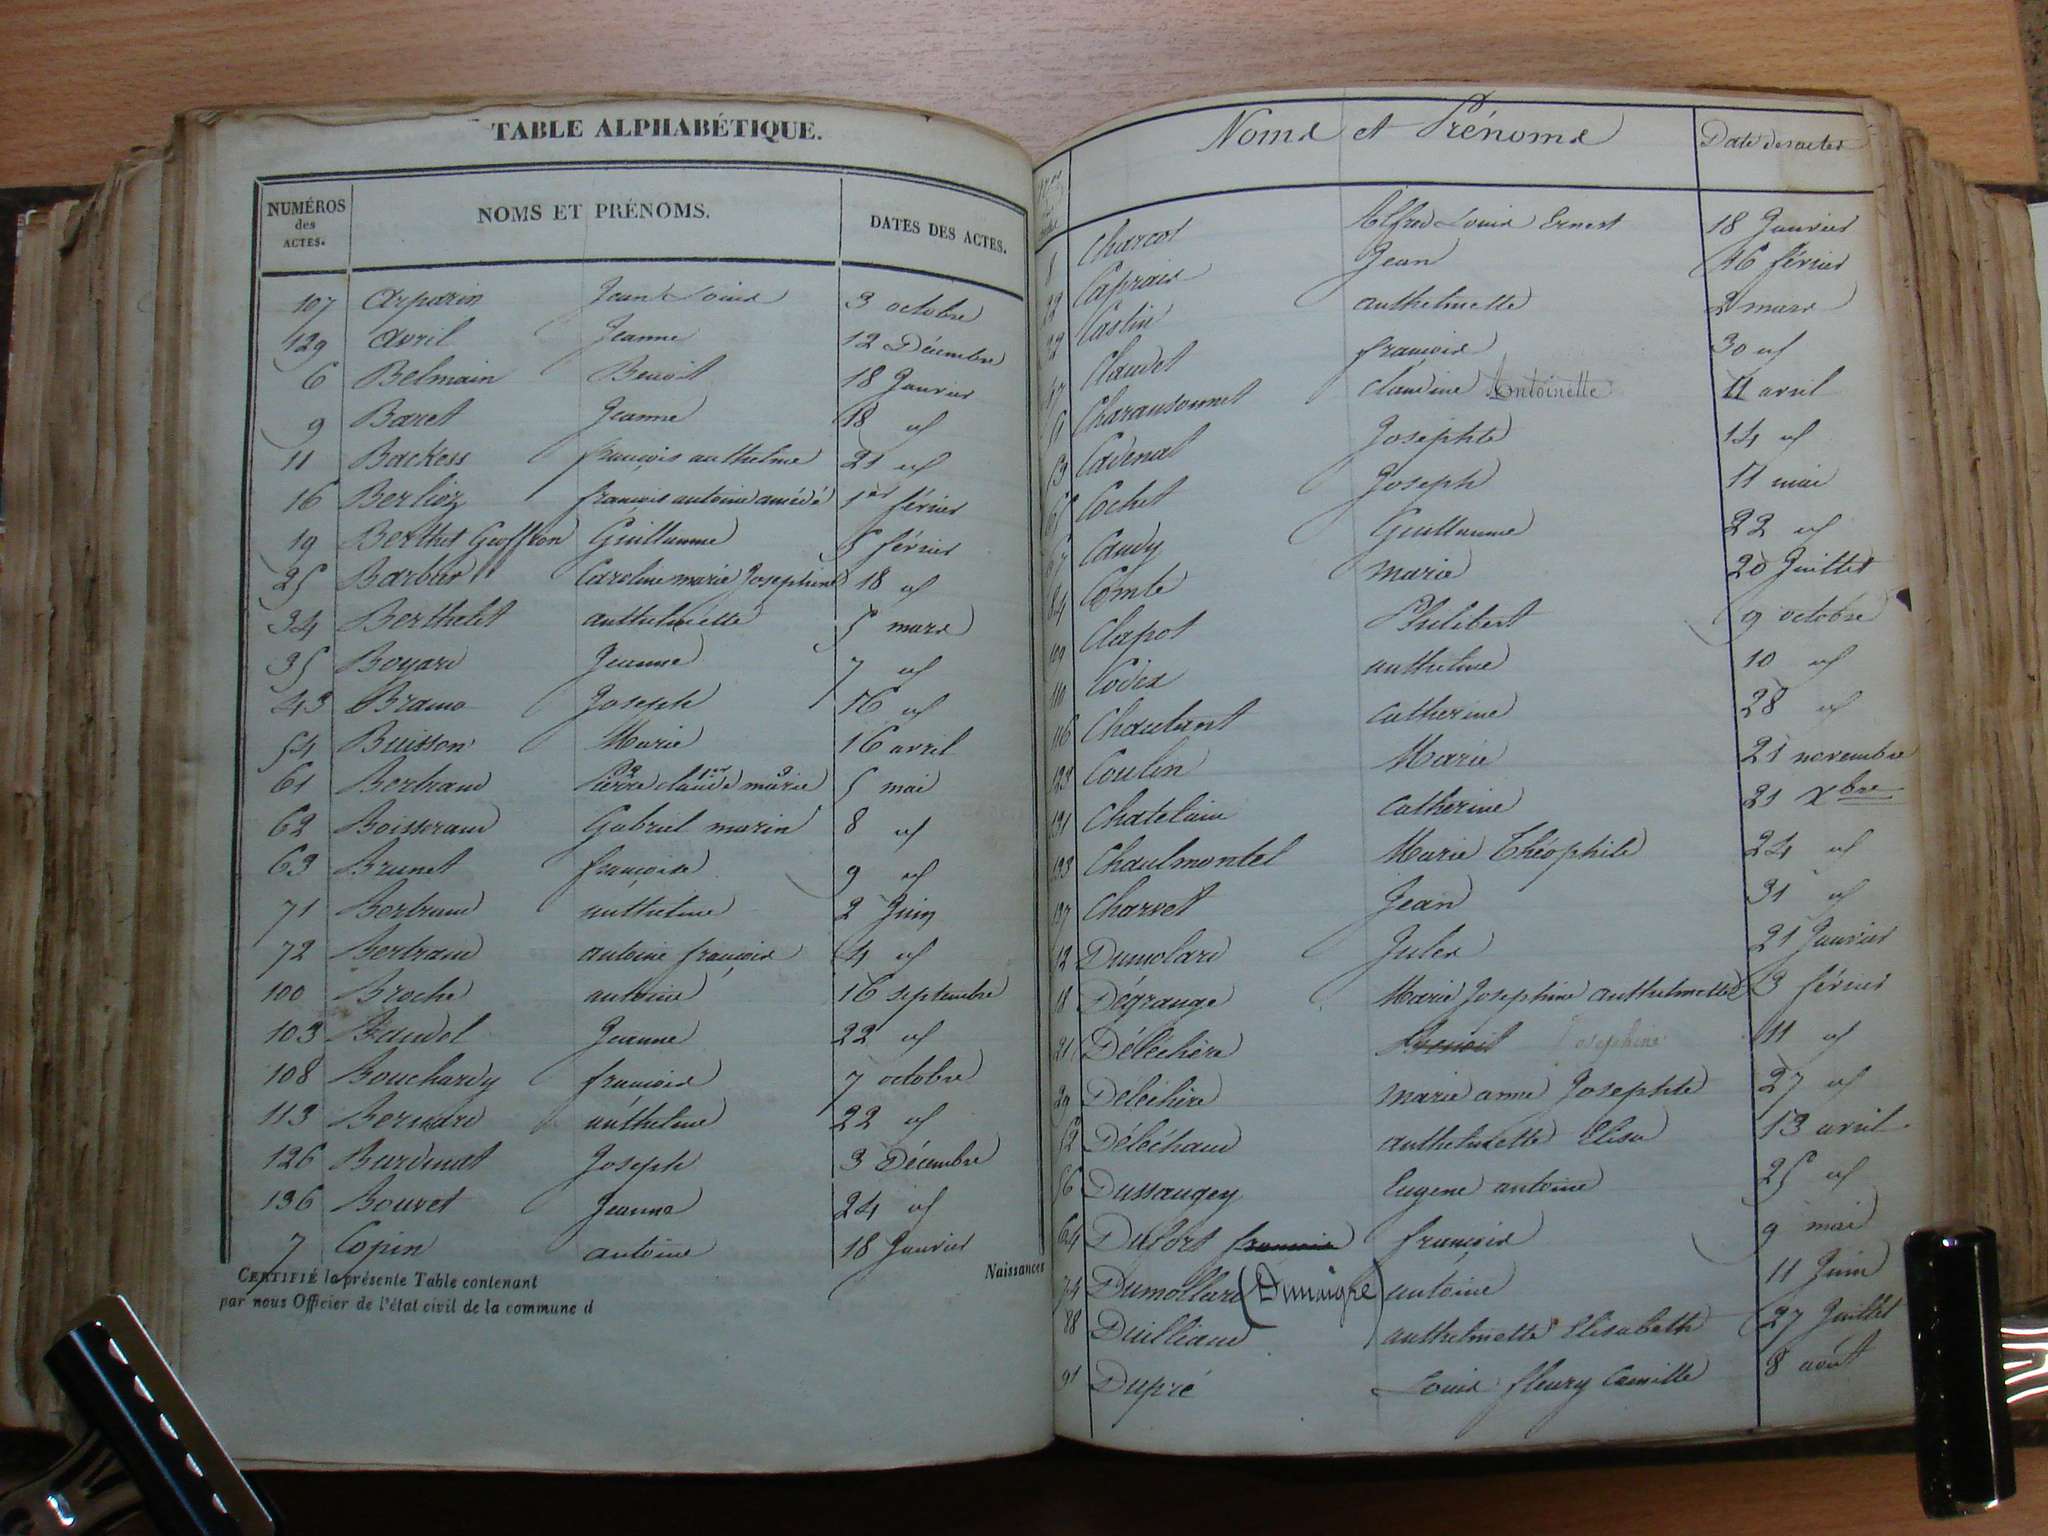 TABLE ALPHABÉTIQUE.
NUMÉROS des ACTES. NOMS ET PRÉNOMS. DATES DES ACTES.
107 Arparin Jean Louis 3 octobre
129 Avril Jeanne 12 Décembre
6 Belmain Benoit 18 Janvier
9 Baret Jeanne 18 id
11 Backess françois anthelme 21 id
16 Berlioz françois antoine amédé 1er février
19 Berthet Geoffron Guillaume 5 février
25 Barbar Caroline marie Josephine 18 id
34 Berthelet anthelmette 5 mars
35 Boyard Jeanne 7 id
43 Bramo Joseph 16 id
54 Buisson Marie 16 avril
61 Bertrand Pierre claude marie 5 mai
62 Boisserand Gabriel marin 8 id
63 Brunet françoise 9 id
71 Bertrand anthelme 2 Juin
72 Bertrand antoine françois 4 id
100 Broche antoine 16 septembre
103 Baudol Jeanne 22 id
108 Bouchardy françois 7 octobre
113 Bernard anthelme 22 id
126 Burdinat Joseph 3 Décembre
136 Bouvet Jeanne 24 id
7 Copin antoine 18 Janvier
CERTIFIÉ la présente Table contenant Naissances
par nous Officier de l'état civil de la commune d
Noms et Prénoms Date des actes
Charcot Alfred Louis Ernest 18 Janvier
22 Caprais Jean 16 février
Castin anthelmette 2 mars
47 Claudet françois 30 id
Charansonnet claudine Antoinette 11 avril
Cadenat Josephte 14 id
Cochet Joseph 17 mai
67 Caudy Guillaume 22 id
84 Comte marie 20 Juillet
109 Clapot Philibert 9 octobre
110 Codex anthelme 10 id
116 Chautant catherine 28 id
123 Coulon Marie 21 novembre
131 Chatelain catherine 21 Xbre
133 Chaulmontel Marie Théophile 24 id
137 Charvet Jean 31 id
12 Dumolard Jules 21 Janvier
18 Dégrange Marie Josephine anthelmette 3 février
21 Déléchère Benoit Josephine 11 id
29 Déléchère marie anne Josephte 27 id
52 Déléchaud anthelmette Elisa 13 avril
56 Dussaugey Eugene antoine 25 id
64 Duport françois françois 9 mai
74 Dumollard (Dimaigre) antoine 11 Juin
88 Duilliand anthelmette Elisabeth 27 Juillet
91 Dupré Louis fleury Camille 8 août